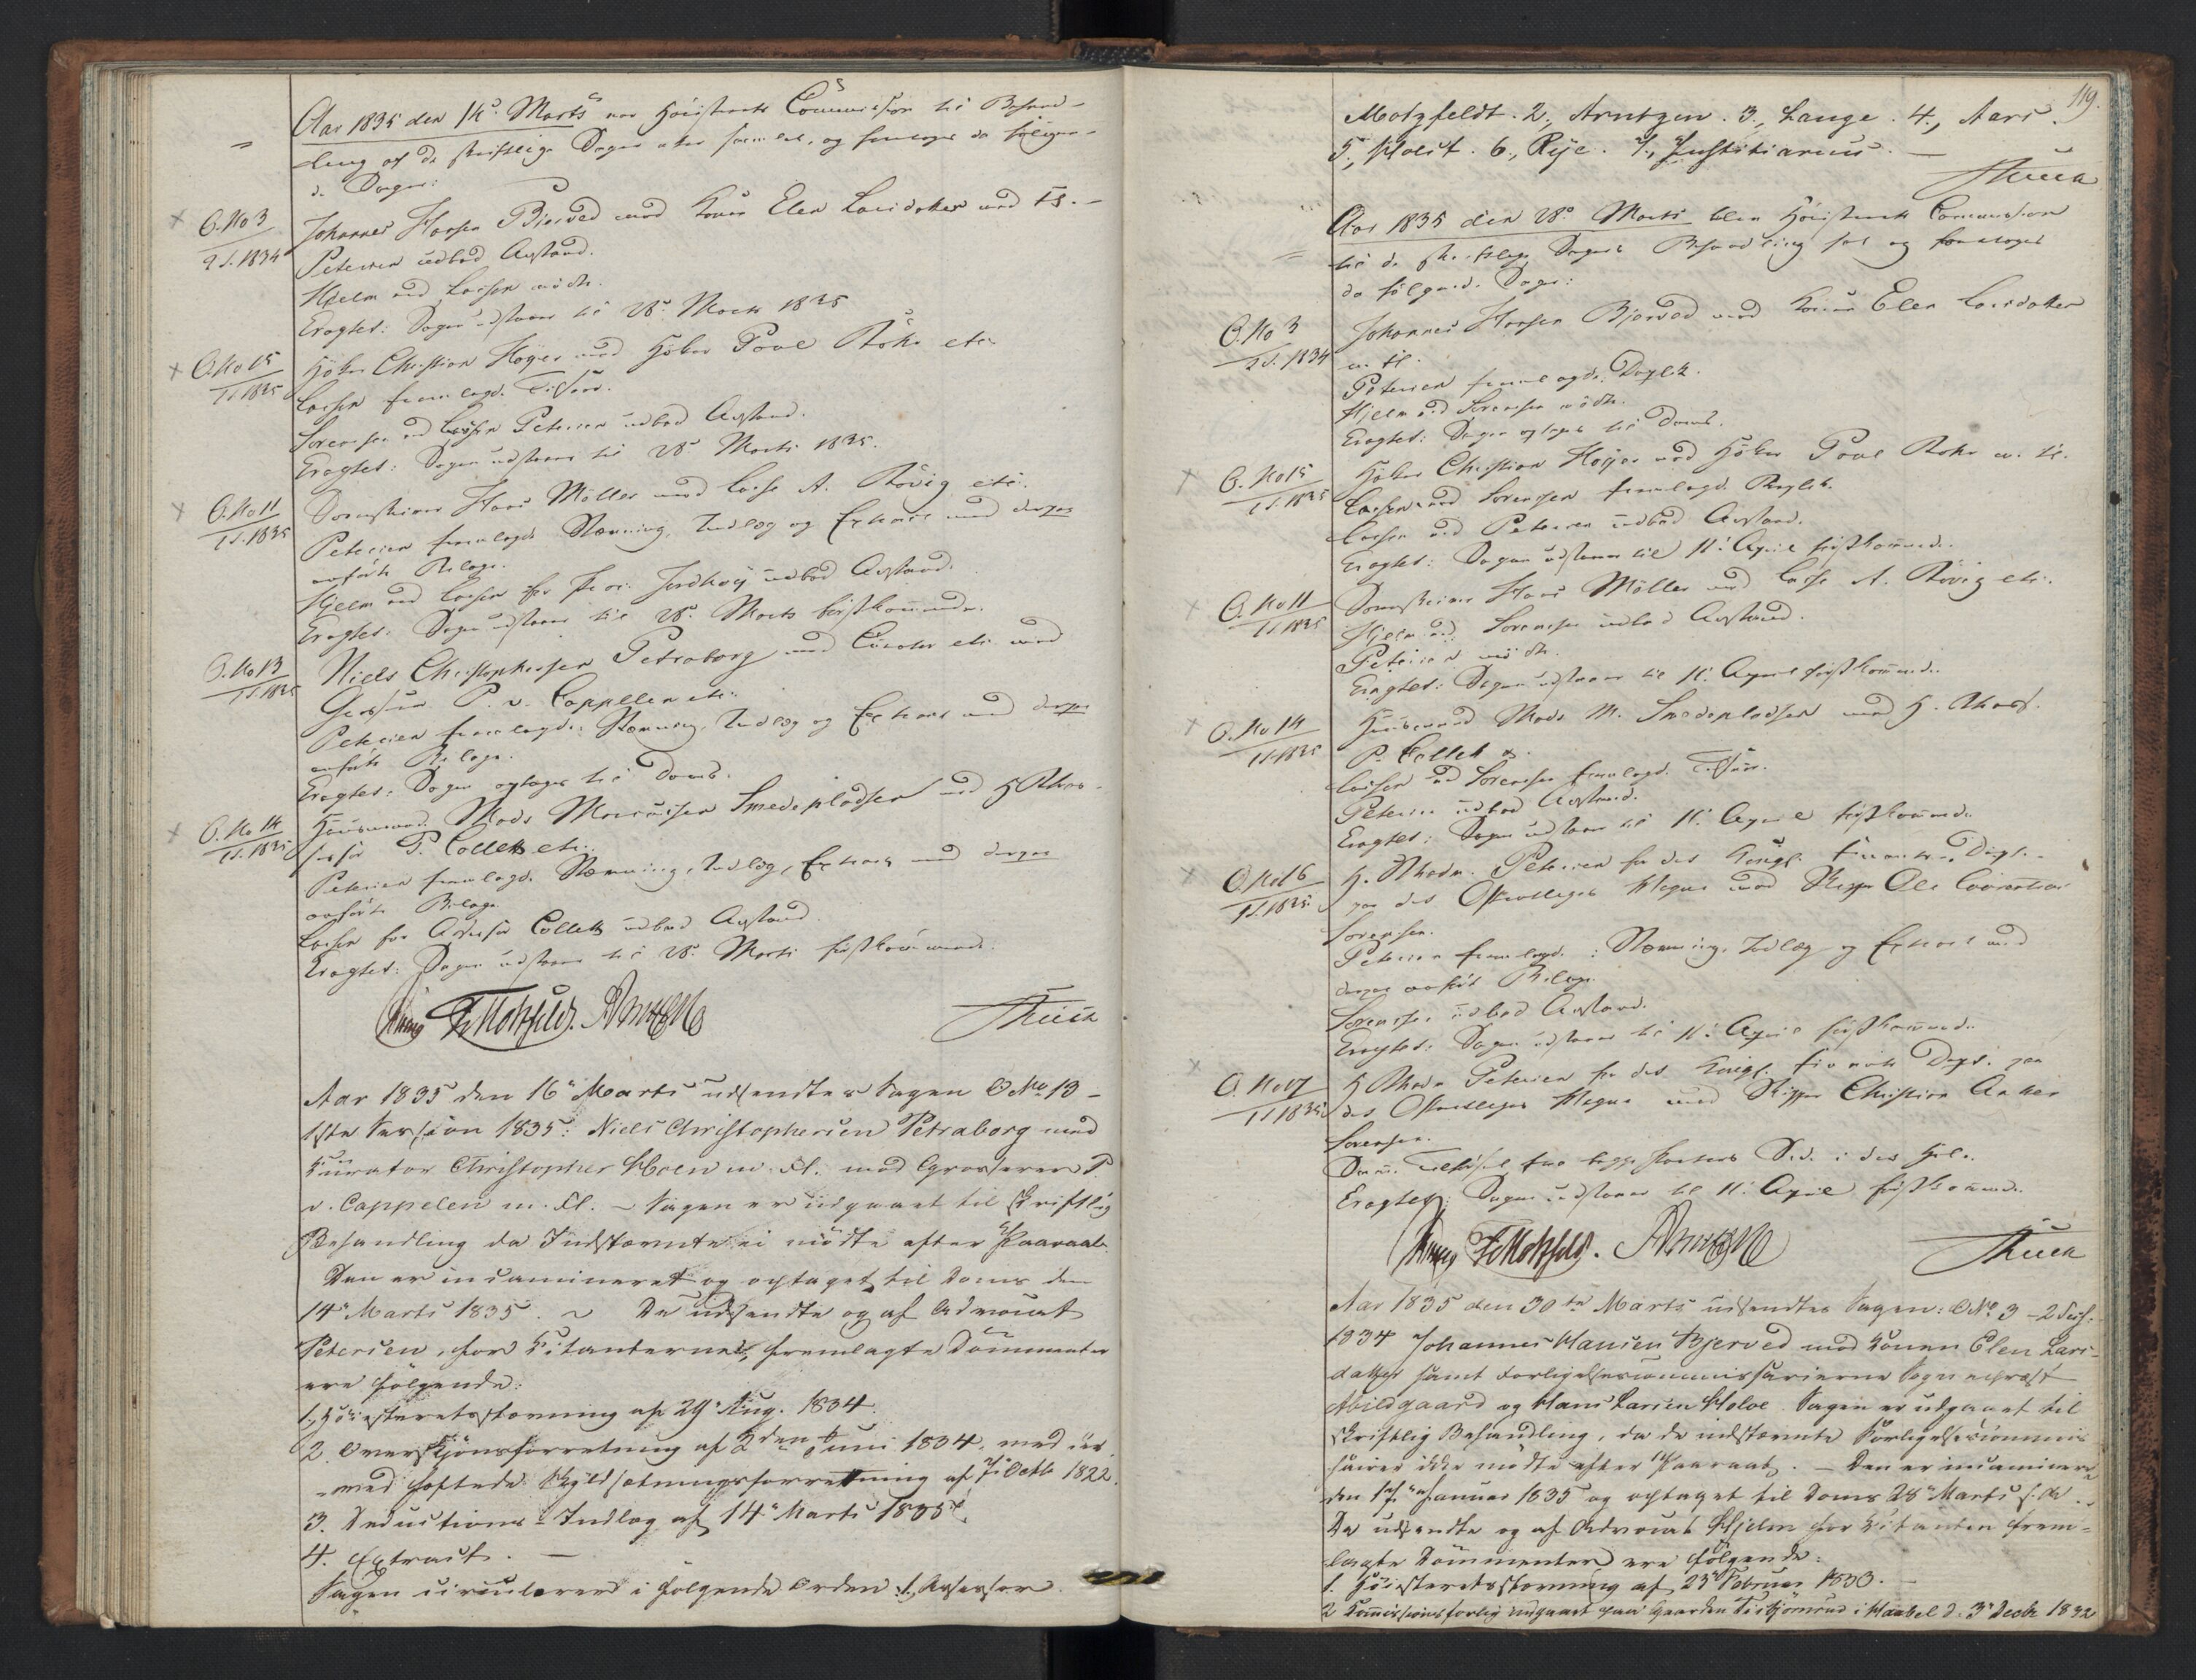 Aar 1835 den 14de Marts var Høiesterets Commission til Behand-
ling af de skriftlige Sager atter samlet, og foretoges da følgen-
de Sager:
O. No 3
2 S. 1834
Johannes Hansen Bjerved mod Konen Elen Larsdatter med Fl. -
Petersen udbad Anstand.
Hjelm ved Larsen mødte.
Eragtet: Sagen udstaaer til 28de Marts 1835
O. No 15
1 S. 1835
Høker Christian Høyer mod Høker Povel Rohr etc.
Larsen fremlagde Tilsvar.
Sorensen ved Petersen udbad Anstand.
Eragtet: Sagen udstaaer til 28de Marts 1835.
O. No 11
1 S. 1835
Sorenskriver Hans Møller mod Lars A. Røvig etc.
Petersen fremlagde Stævning, Indlæg og Extract med derpaa
anførte Bilage.
Hjelm ved Larsen for udbad Anstand.
Eragtet: Sagen udstaaer til 28de Marts førstkommende.
O. No 13
1 S. 1835
Niels Christophersen Petraborg med Curator etc. mod
Grosserer P. v. Cappelen etc.
Petersen fremlagde: Stævning, Indlæg og Extract med derpaa
anførte Bilage.
Eragtet: Sagen optages til Doms.
O. No 14
1 S. 1835
Huusmand Mads Smedepladsen mod H Asses-
sor P. Collett etc.
Petersen fremlagde Stævning, Indlæg, Extract med derpaa
anførte Bilage.
Larsen for Assessor Collett udbad Anstand
Eragtet: Sagen udstaaer til 28de Marts førstkommende.
Motzfeldt. Arntzen
Aar 1835 den 16de Marts udsendtes Sagen O No 13 -
1ste Session 1835: Niels Christophersen Petraborg med
Kurator Christopher Hoen m. Fl. mod Grosserer P.
v. Cappelen m. Fl. - Sagen er udgaaet til skriftlig
Behandling da Indstævnte ei mødte efter Paaraab.
Den er incamineret og optaget til Doms den
14de Marts 1835. - De udsendte og af Advocat
Petersen, for Citanterne, fremlagte Documenter
ere følgende:
1, Høiesteretsstævning af 29de Aug. 1834.
2. Overskjønsforretning af 2den Juni 1834. med der-
med heftede Skyldsætningsforretning af 7de Octb 1822.
3. Deductions-Indlæg af 14de Marts 1835.
4. Extract. -
Sagen circulerer i følgende Orden: 1, Assessor
119.
Motzfeldt. 2, Arntzen. 3, Lange. 4, Aars.
5, Holst. 6, Rye. 7, Justitiarius. -
Aar 1835 den 28de Marts blev Høiesterets Commission
til de skriftlige Sagers Behandling sat og foretoges
da følgende Sager:
O. No 3
2 S. 1834
Johannes Hansen Bjerved mod Konen Elen Larsdatter
m. fl.
Petersen fremlagde Duplik.
Hjelm ved Sorensen mødte.
Eragtet: Sagen optages til Doms.
O. No 15
1 S. 1835
Høker Christian Høyer mod Høker Povel Rohr m. fl.
Larsen ved Sorensen fremlagde Replik.
Larsen ved Petersen udbad Anstand.
Eragtet: Sagen udstaaer til 11te April førstkommende.
O. No 11
1 S. 1835
Sorenskriver Hans Møller mod Lars A. Røvig etc.
Hjelm ved Sorensen udbad Anstand.
Petersen mødte.
Eragtet: Sagen udstaaer til 11te April førstkommende.
O. No 14
1 S. 1835
Huusmand Mads M. Smedepladsen mod H. Assess.
P. Collett
Larsen ved Sorensen fremlagde Tilsvar.
Petersen udbad Anstand.
Eragtet: Sagen udstaaer til 11te April førstkommende
O. No 16
1 S. 1835
H. Advoc. Petersen for det Kongl. Finants-Dept.
paa det Offentliges Vegne mod Skipper Ole
Sorensen.
Petersen fremlagde: Stævning, Indlæg og Extract med
derpaa anført Bilage.
Sorensen udbad Anstand.
Eragtet: Sagen udstaaer til 11te April førstkommende.
O. No 17
1 S 1835
H Advoc Petersen for det Kongl. Finants Dept. paa
det Offentliges Vegne mod Skipper Christian Anker
Sorensen.
Eragtet: Sagen udstaaer til 11te April førstkommende.
Motzfeldt. Arntzen
Aar 1835 den 30te Marts udsendtes Sagen: O No 3 - 2 Sess.
1834 Johannes Hansen Bjerved mod Konen Elen Lars-
datter samt Forligelsescommissairerne Sognepræst
Abildgaard og Hans Larsen Holoe. Sagen er udgaaet til
skriftlig Behandling, da de indstævnte Forligelsescommis-
sairer ikke mødte efter Paaraab. - Den er incamineret
den Januar 1835 og optaget til Doms 28de Marts s. A. -
De udsendte og af Advocat Hjelm for Citanten frem-
lagte Documenter ere følgende:
1. Høiesteretsstævning af 23de Februar 1833. -
2 Commissionsforlig indgaaet paa Gaarden i Haabel d. 3de Decbr 1832